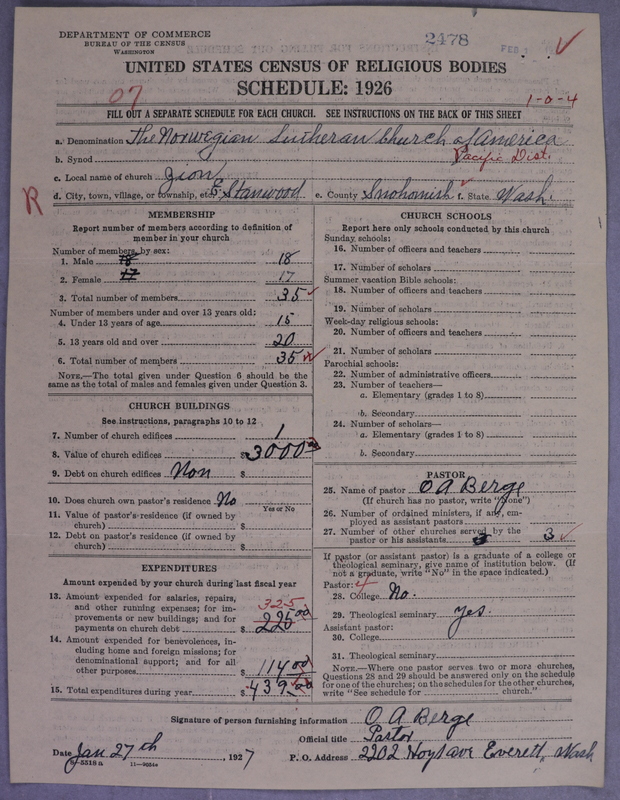 DEPARTMENT OF COMMERCE
BUREAU OF THE CENSUS
WASHINGTON
2478
FEB
UNITED STATES CENSUS OF RELIGIOUS BODIES
SCHEDULE: 1926
07
1-0-4
FILL OUT A SEPARATE SCHEDULE FOR EACH CHURCH. SEE INSTRUCTIONS ON THE BACK OF THIS SHEET
a. Denomination The Norwegian Lutheran Church of America
b. Synod Pacific Dist.
c. Local name of church Zion
R
d. City, town, village, or township, etc. E Stanwood e. County Snohomish f. State Wash.
MEMBERSHIP
Report number of members according to definition of member in your church
Number of members, by sex:
1. Male 18 18
2. Female 17 17
3. Total number of members 35
Number of members under and over 13 years old:
4. Under 13 years of age 15
5. 13 years old and over 20
6. Total number of members 35
NOTE.—The total given under Question 6 should be the same as the total of males and females given under Question 3.
CHURCH BUILDINGS
See instructions, paragraphs 10 to 12
7. Number of church edifices 1
8. Value of church edifices $3000
9. Debt on church edifices Non $
10. Does church own pastor's residence No
Yes or No
11. Value of pastor's residence (if owned by church) $
12. Debt on pastor's residence (if owned by church) $
EXPENDITURES
Amount expended by your church during last fiscal year
13. Amount expended for salaries, repairs, and other running expenses; for improvements or new buildings; and for payments on church debt $ 325
14. Amount expended for benevolences, including home and foreign missions; for denominational support; and for all other purposes 114 00
15. Total expenditures during year $439
CHURCH SCHOOLS
Report here only schools conducted by this church
Sunday schools:
16. Number of officers and teachers
17. Number of scholars
Summer vacation Bible schools:
18. Number of officers and teachers
19. Number of scholars
Week-day religious schools:
20. Number of officers and teachers
21. Number of scholars
Parochial schools:
22. Number of administrative officers
23. Number of teachers—
a. Elementary (grades 1 to 8)
b. Secondary
24. Number of scholars—
a. Elementary (grades 1 to 8)
b. Secondary
PASTOR
25. Name of pastor O A Berge
(If church has no pastor, write "None")
26. Number of ordained ministers, if any, employed as assistant pastors
27. Number of other churches served by the pastor or his assistants 3
If pastor (or assistant pastor) is a graduate of a college or theological seminary, give name of institution below. (If not a graduate, write "No" in the space indicated.)
Pastor: 4
28. College No.
29. Theological seminary Yes.
Assistant pastor:
30. College
31. Theological seminary
NOTE.—Where one pastor serves two or more churches, Questions 28 and 29 should be answered only on the schedule for one of the churches; on the schedules for the other churches, write "See schedule for church."
Signature of person furnishing information O A Berge
Official title Pastor
Date Jan 27th, 1927 P. O. Address 2202 Hoyt ave Everett, Wash
8—5518 a 11—9664a